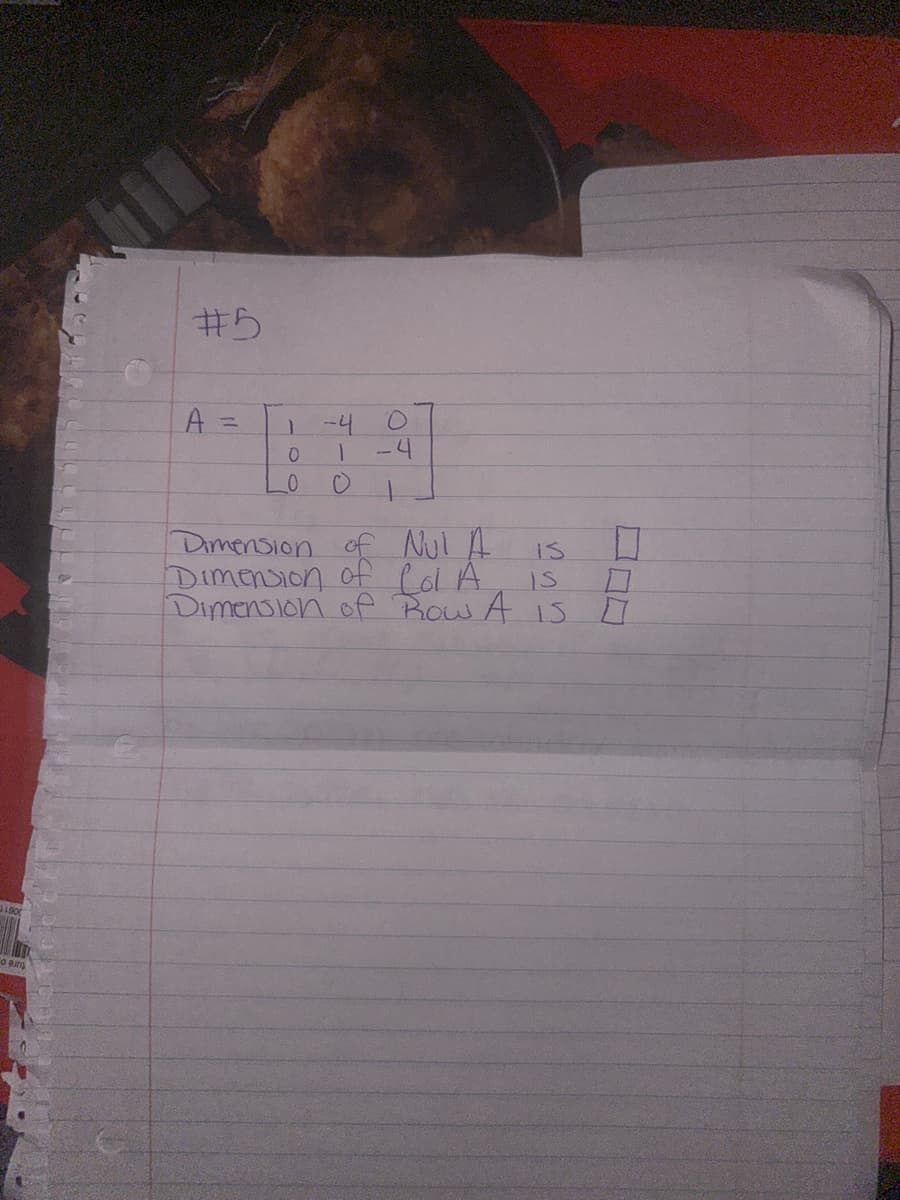 #5
A = [ 1 -4 0
0 1 -4
0 0 1 ]
Dimension of Nul A is □
Dimension of Col A is □
Dimension of Row A is □